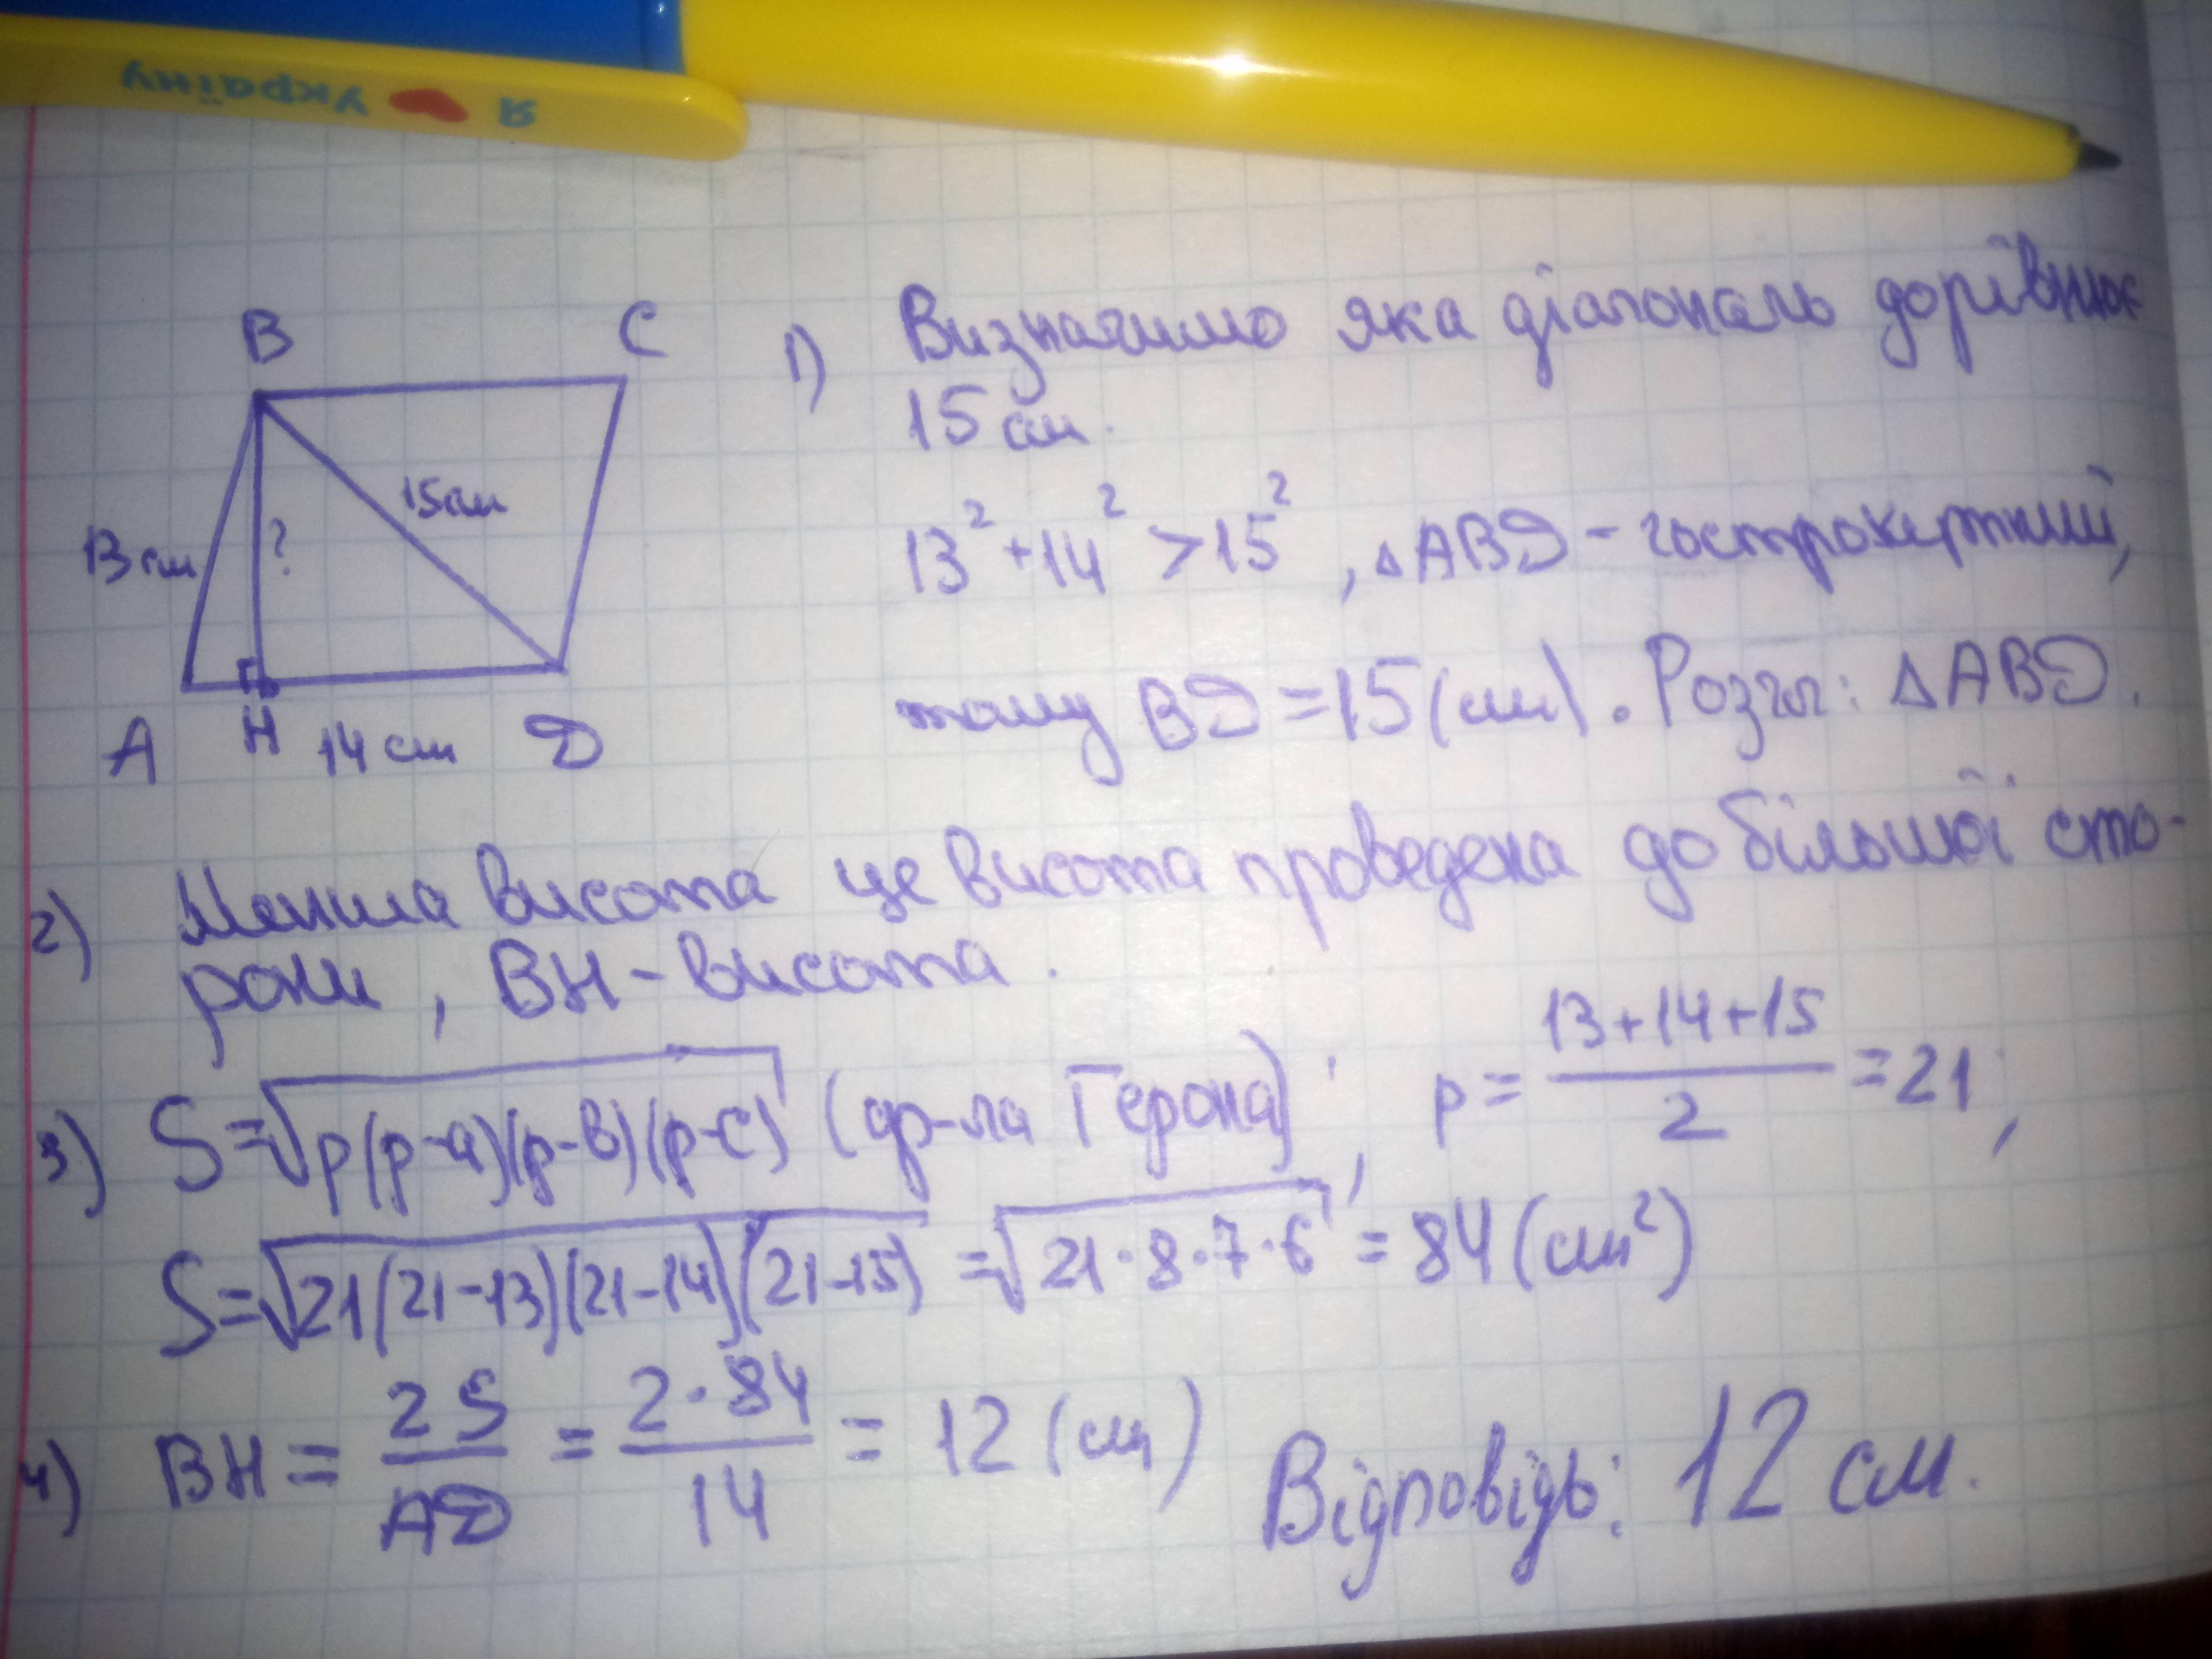 Я ❤ Україну
B C
13 см ? 15см
A H 14 см D
1) Визначимо яка діагональ дорівнює
15 см.
13² + 14² > 15², △ABD - гострокутний,
тому BD = 15 (см). Розгл: △ABD.
2) Менша висота це висота проведена до більшої сто-
рони, BH - висота.
3) S = √p(p-a)(p-b)(p-c) (ф-ла Герона); p = (13+14+15)/2 = 21;
S = √21(21-13)(21-14)(21-15) = √21·8·7·6 = 84 (см²)
4) BH = 2S/AD = 2·84/14 = 12 (см) Відповідь: 12 см.